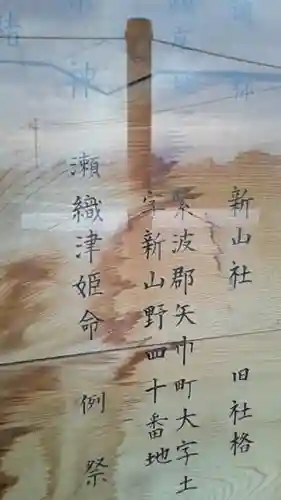 新山社 旧社格
紫波郡矢巾町大字土
字新山野四十番地
瀬織津姫命 例祭